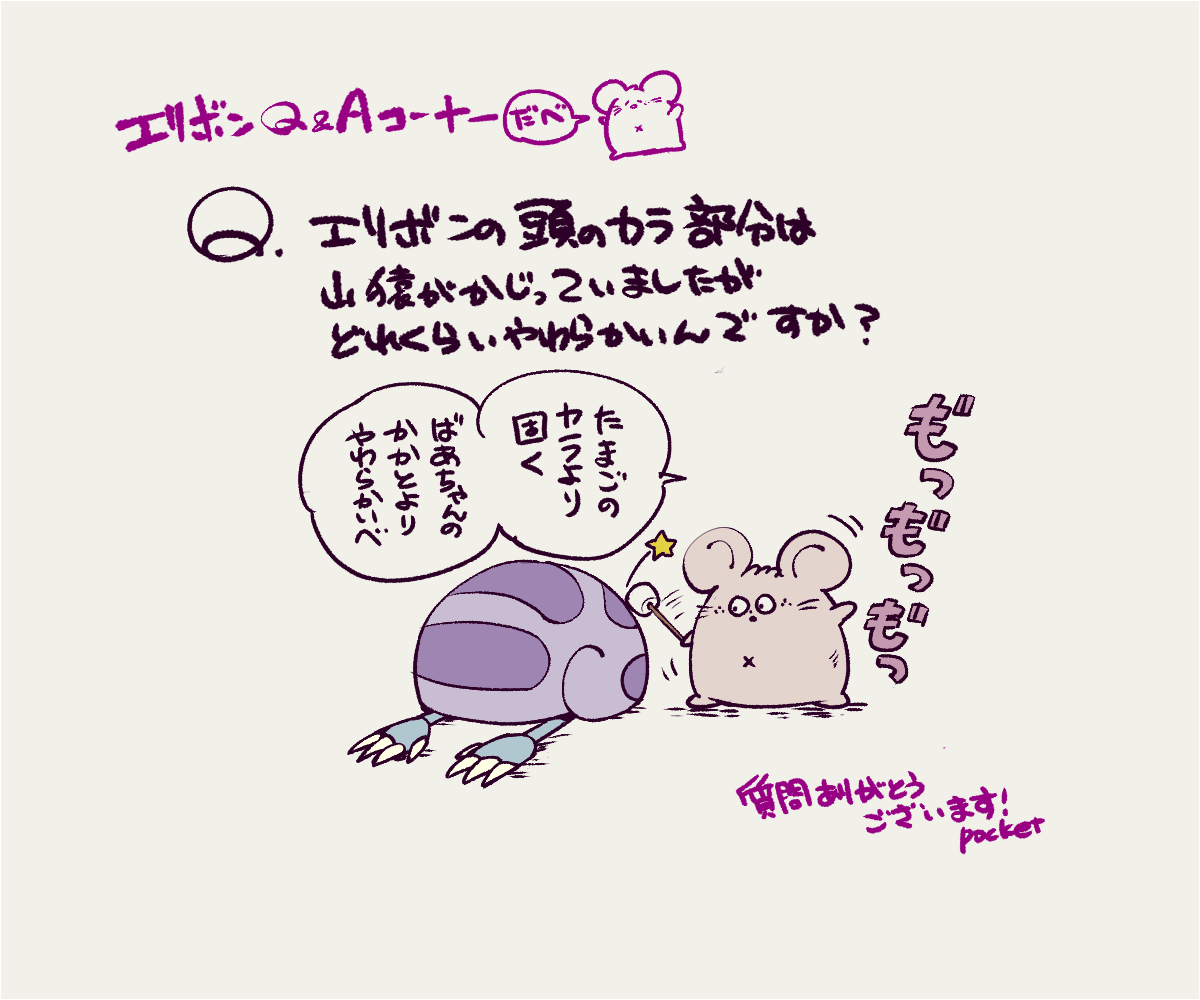 エリボンQ&Aコーナー
だべ
Q. エリボンの頭のカラ部分は
山猿がかじっていましたが
どれくらいやわらかいんですか?
たまごの
カラより
固く
ばあちゃんの
かかとより
やわらかいべ
もっ゛もっ゛もっ゛
質問ありがとう
ございます!
pocket